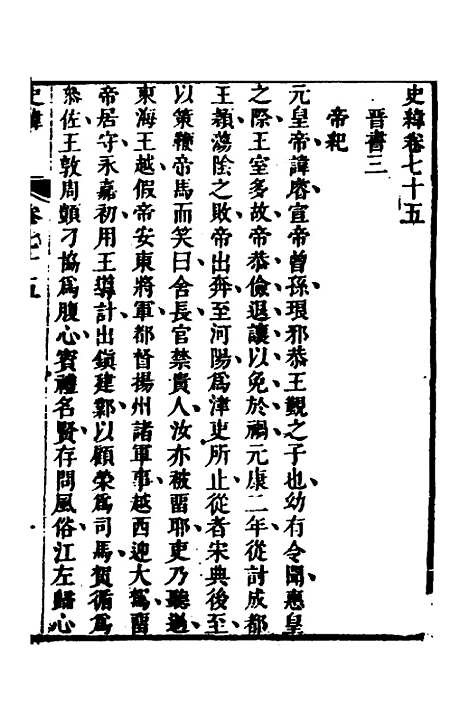 史緯卷七十五
晋書三
帝紀
元皇帝諱睿宣帝曾孫琅邪恭王覲之子也幼有令聞惠皇
之際王室多故帝恭儉退讓以免於禍元康二年從討成都
王穎蕩陰之敗帝出奔至河陽爲津吏所止從者宋典後至
以策鞭帝馬而笑曰舍長官禁貴人汝亦被畱耶吏乃聽過
東海王越假帝安東將軍都督揚州諸軍事越西迎大駕畱
帝居守永嘉初用王導計出鎭建鄴以顧榮爲司馬賀循爲
叅佐王敦周顗刁協爲腹心賓禮名賢存問風俗江左歸心
史緯
卷七十五